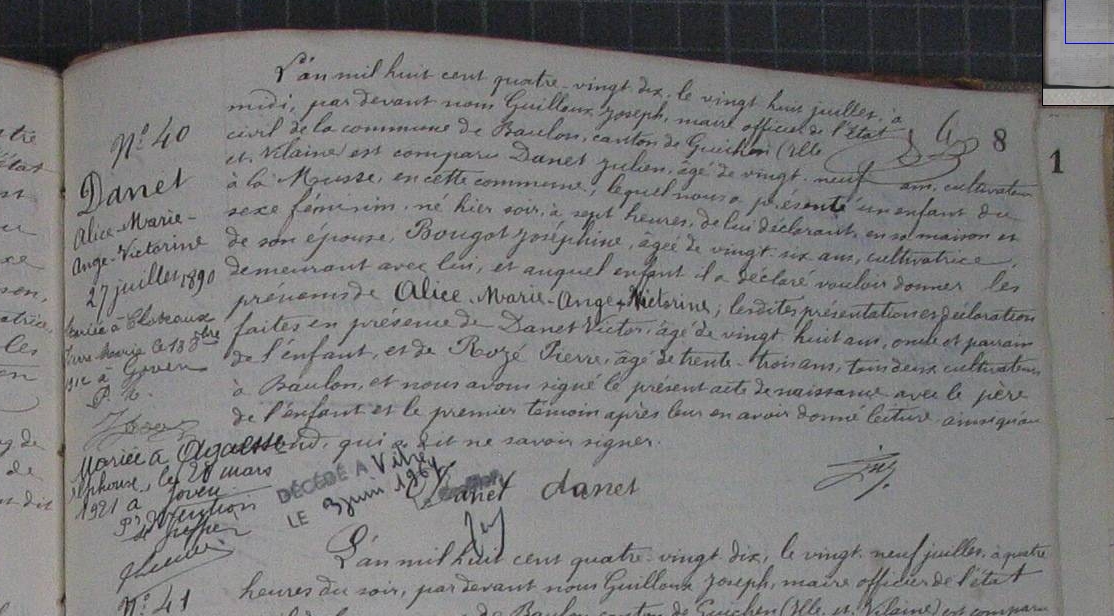 8
1
N° 40
Danet
Alice-Marie-
Ange-Victorine
27 juillet 1890
mariée à
Pierre Marie le 13
à Goven
L'an mil huit cent quatre-vingt-dix, le vingt huit juillet, à
midi, par devant nous Guilloux Joseph, maire officier de l'état
civil de la commune de Baulon, canton de Guichen (Ille
et Vilaine) est comparu Danet Julien, âgé de vingt-neuf ans, cultivateur
à la Musse, en cette commune, lequel nous a présenté un enfant du
sexe féminin, né hier soir, à sept heures, de lui déclarant, en sa maison et
de son épouse, Bougot Joséphine, âgée de vingt-six ans, cultivatrice,
demeurant avec lui, et auquel enfant il a déclaré vouloir donner les
prénoms de Alice-Marie-Ange-Victorine; lesdites présentation et déclaration
faites en présence de Danet Victor, âgé de vingt huit ans, oncle et parrain
de l'enfant, et de Rozé Pierre, âgé de trente-trois ans, tous deux cultivateurs
à Baulon, et nous avons signé le présent acte de naissance avec le père
de l'enfant et le premier témoin après leur en avoir donné lecture ainsi qu'au
second, qui a dit ne savoir signer.
Mariée à Agaesse
Alphonse, le 28 mars
1921 à Goven
Pr Mention
le Greffier
DÉCÉDÉ A Vitré
LE 3 juin 196
Danet danet
N° 41
L'an mil huit cent quatre-vingt-dix, le vingt-neuf juillet, à quatre
heures du soir, par devant nous Guilloux Joseph, maire officier de l'état
de Baulon canton de Guichen (Ille et Vilaine) est comparu